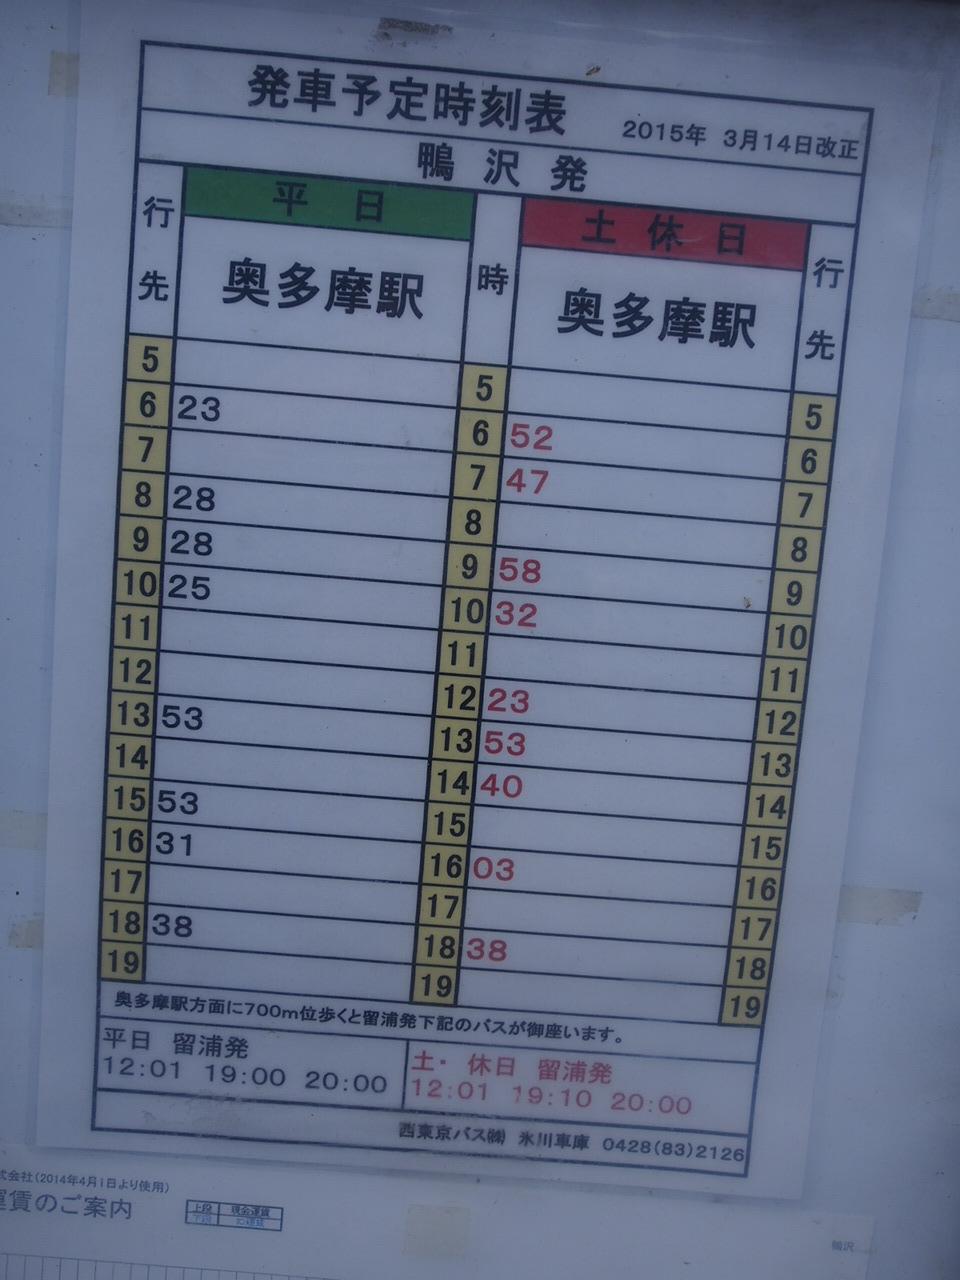 発車予定時刻表
2015年 3月14日改正
鴨沢発
行先 平日 時 土休日 行先
奥多摩駅 奥多摩駅
5 5 5
6 23 6 52 6
7 7 47 7
8 28 8 8
9 28 9 58 9
10 25 10 32 10
11 11 11
12 12 23 12
13 53 13 53 13
14 14 40 14
15 53 15 15
16 31 16 03 16
17 17 17
18 38 18 38 18
19 19 19
奥多摩駅方面に700m位歩くと留浦発下記のバスが御座います。
平日 留浦発
12:01 19:00 20:00
土・休日 留浦発
12:01 19:10 20:00
西東京バス㈱ 氷川車庫 0428(83)2126
式会社(2014年4月1日より使用)
運賃のご案内
上段 現金運賃
下段 IC運賃
鴨沢